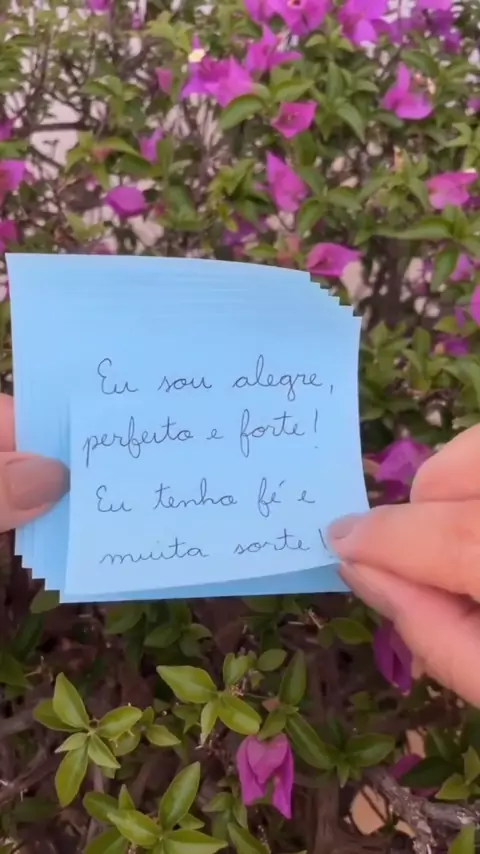 Eu sou alegre,
perfeito e forte!
Eu tenho fé e
muita sorte!